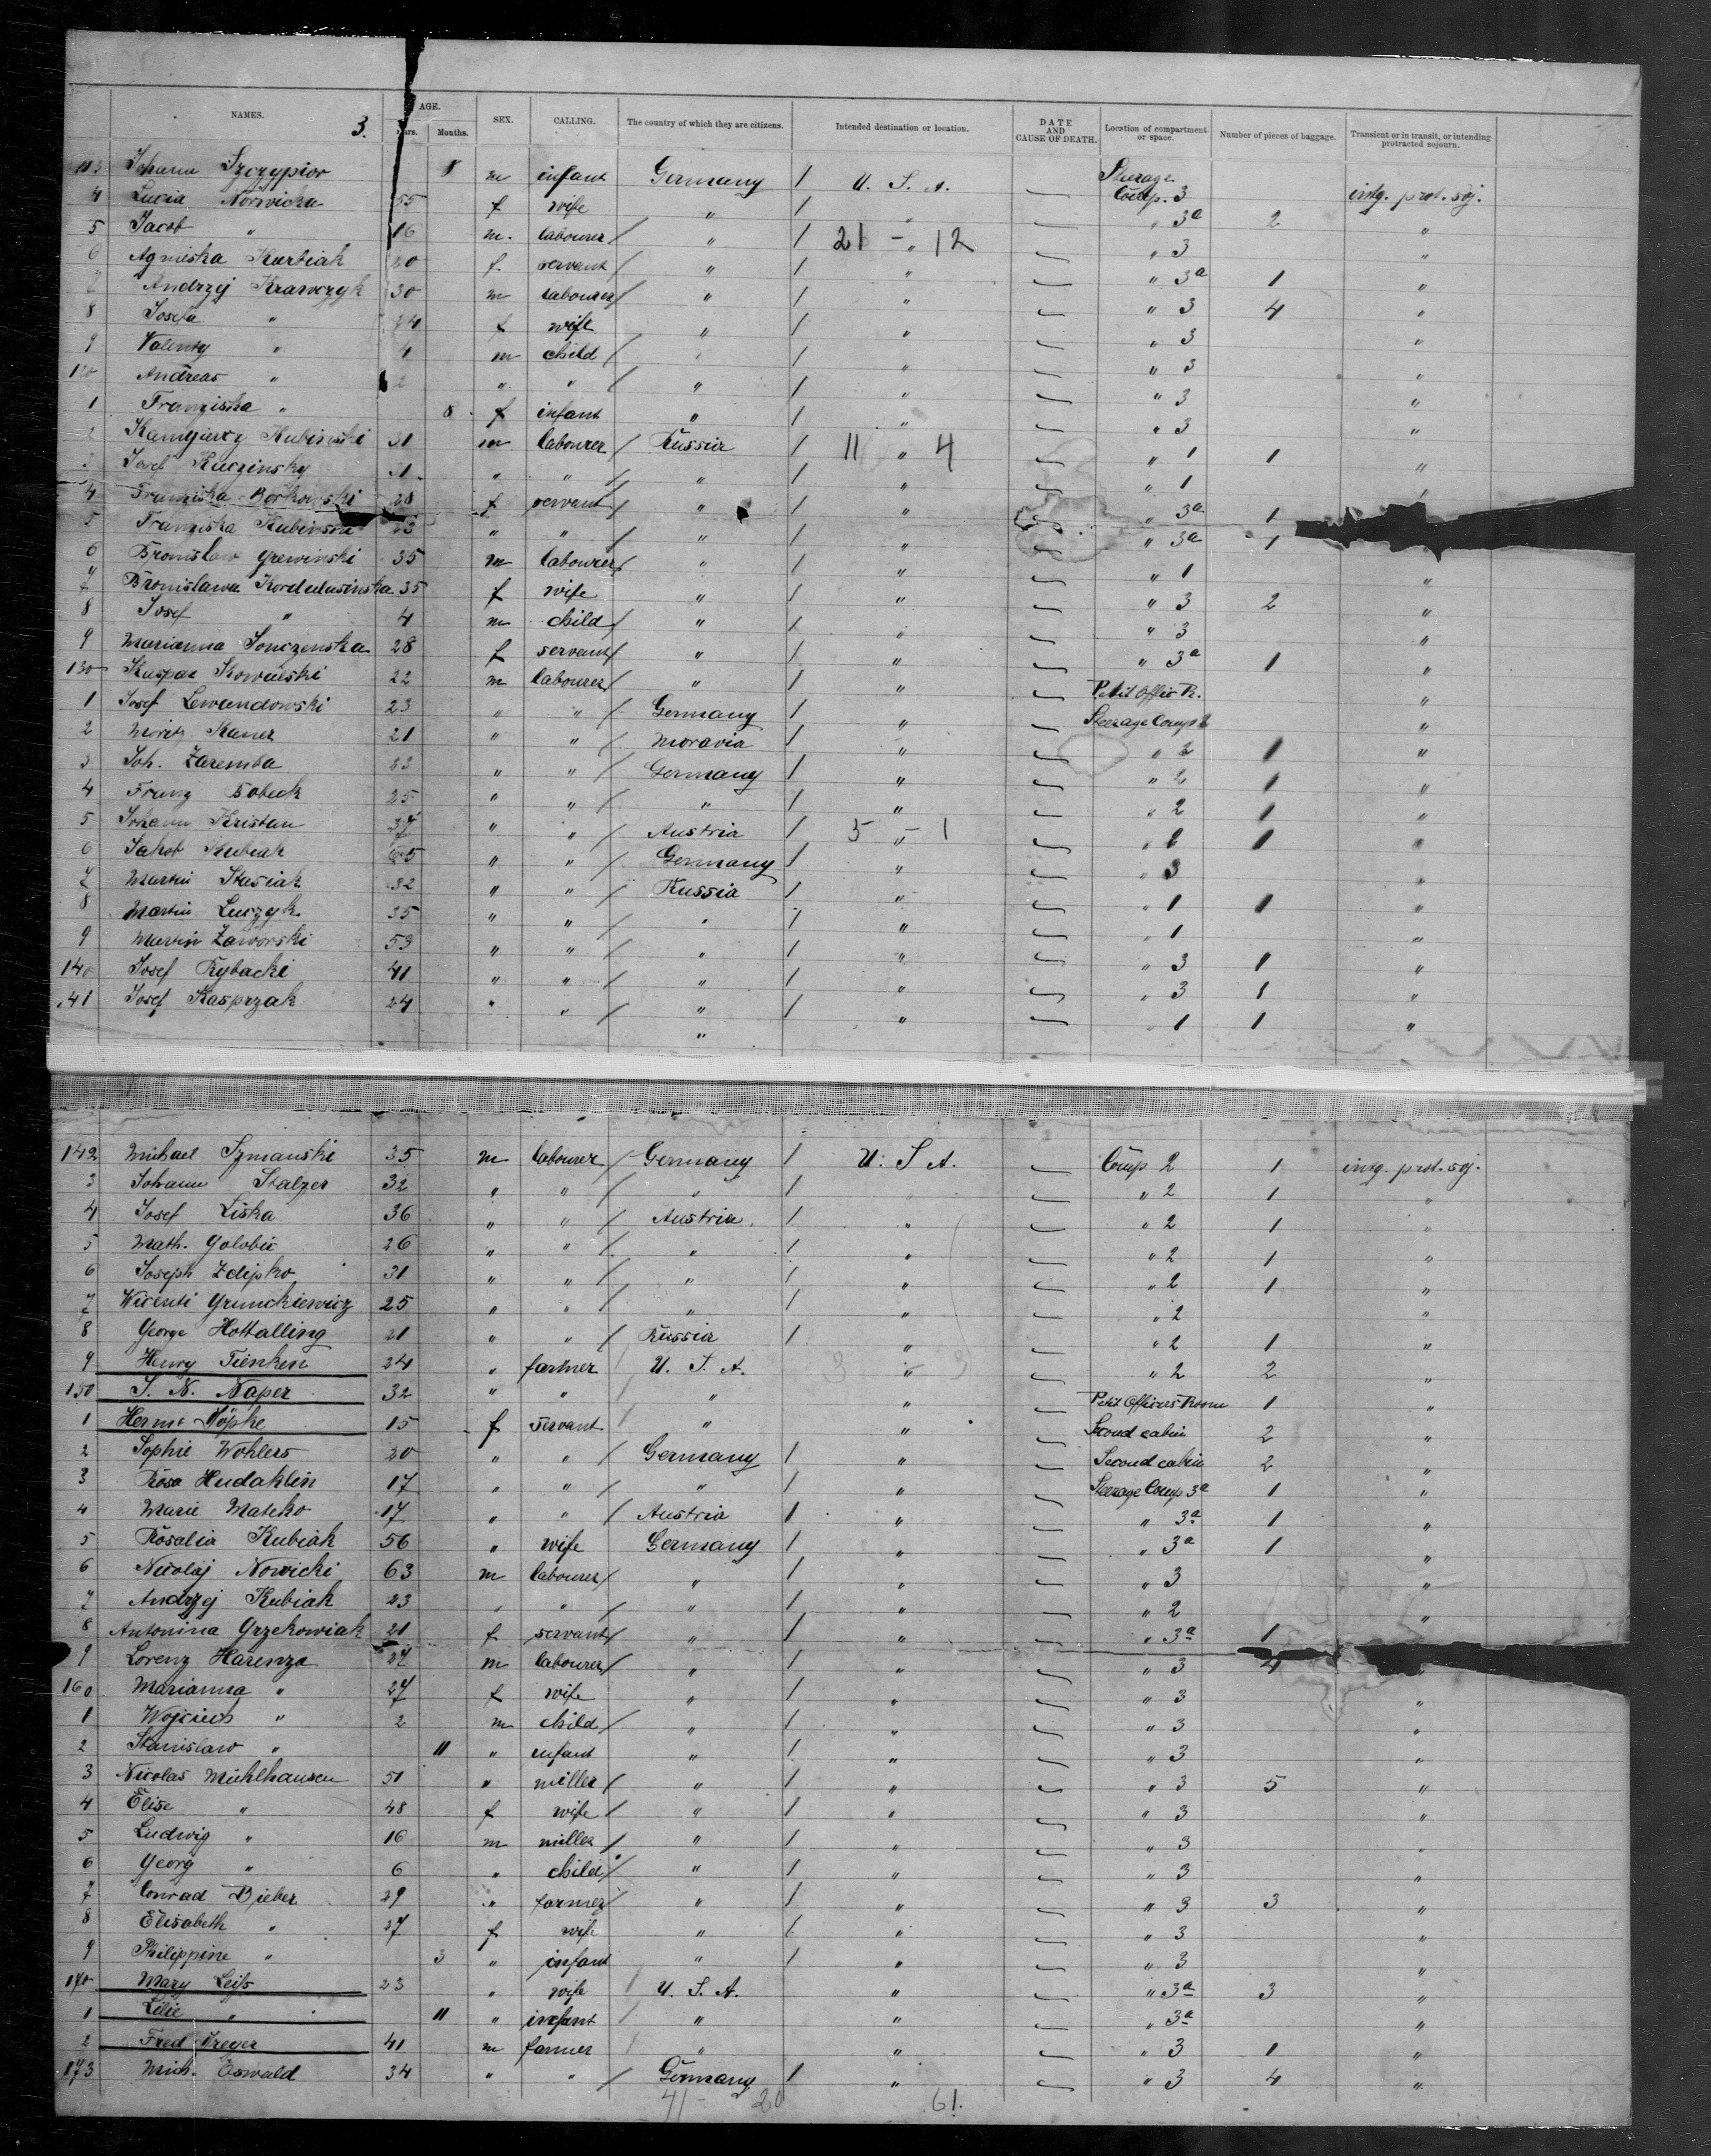 NAMES. 3. AGE. Months. SEX. CALLING. The country of which they are citizens. Intended destination or location. DATE AND CAUSE OF DEATH. Location of compartment or space. Number of pieces of baggage. Transient or in transit, or intending protracted sojourn.
Johann Szczypior 8 m infant Germany / U. S. A. Steerage Comp. 3 intg. prot. soj.
4 Lucia Norwicka 55 f wife " / " " 3a 2 "
5 Jacob " 16 m. labourer / " / 21 - " 12 " 3 "
6 Agniska Kurbiak 20 f. servant / " / " " 3a 1 "
7 Andrzej Krawczyk 30 m labourer / " / " " 3 4 "
8 Josefa " 24 f wife " / " " 3 "
9 Valenty " 4 m child / " / " " 3 "
120 Andreas " 2 " " / " / " " 3 "
1 Franziska " 8 f infant " / " " 3 "
2 Kubinski 31 m labourer / Russia / 11 " 4 " 1 1 "
3 Josef Kuczinsky 21 " " / " / " " 1 "
4 Franziska Borkowski 28 f servant / " / " " 3a 1
5 Franziska Kubinski 23 " " / " / " " 3a 1
6 Bronislaw Grewinski 35 m labourer / " / " " 1 "
7 Bronislawa 35 f wife " / " " 3 2 "
8 Josef " 4 m child / " / " " 3 "
9 Marianna 28 f servant / " / " " 3a 1 "
130 Kaspar Kowalski 22 m labourer / " / " "
1 Josef Lewandowski 23 " " / Germany / " Steerage Comp "
2 Moritz 21 " " / Moravia / " " 2 1 "
3 Joh. Zaremba 23 " " / Germany / " " 2 1 "
4 Franz Sobeck 25 " " / " / " " 2 1 "
5 Johann Kristan 37 " " / Austria / 5 - " 1 " 2 1 "
6 Jakob Kubiak " " / Germany / " " 3 "
7 Martin Stasiak 32 " " / Russia / " " 1 1 "
8 Martin Luczyk 35 " " / " / " " 1 "
9 Martin Zaworski 53 " " / " / " " 3 1 "
140 Josef Rybacki 41 " " / " / " " 3 1 "
141 Josef Kasprzak 24 " " / " / " " 1 1 "
"
142 Michael Szmanski 35 m labourer / Germany / U. S. A. Comp 2 1 intg. prot. soj.
3 Johann Stalzer 32 " " / " / " 2 1 "
4 Josef Liska 36 " " / Austria / " " 2 1 "
5 Math. Golobic 26 " " / " / " " 2 1 "
6 Joseph Zdipko 31 " " / " / " " 2 1 "
7 Wicenti Grunckiewicz 25 " " / " / " " 2 "
8 George Hottalling 21 " " / Russia / " " 2 1 "
9 Henry Tienken 24 " farmer / U. S. A. " " 2 2 "
150 J. N. Naper 32 " " / " " Petit Officers Room 1 "
1 Herm. Köpke 15 f servant / " " Second cabin 2 "
2 Sophie Wohlers 20 " " Germany / " Second cabin 2 "
3 Rosa Hudaklin 17 " " / " / " Steerage Comp 3a 1 "
4 Marie Matcko 17 " " / Austria / " " 3a 1 "
5 Rosalia Kubiak 56 " wife Germany / " " 3a 1 "
6 Nicolaj Nowicki 63 m labourer / " / " " 3 "
7 Andrzej Kubiak 23 " " / " / " " 2 "
8 Antonina Grzekowiak 21 f servant / " / " " 3a 1
9 Lorenz Harenza 27 m labourer / " / " " 3 4
160 Marianna " 27 f wife " / " " 3 "
1 Wojciech " 2 m child / " / " " 3 "
2 Stanislaw " 11 " infant " / " " 3 "
3 Nicolas Mühlhausen 51 " miller / " / " " 3 5 "
4 Elise " 48 f wife / " / " " 3 "
5 Ludwig " 16 m miller / " / " " 3 "
6 Georg " 6 " child / " / " " 3 "
7 Conrad Bieber 29 " farmer / " / " " 3 3 "
8 Elisabeth " 27 f wife " / " " 3 "
9 Philippine " 3 " infant " / " " 3 "
170 Mary Leifs 23 " wife / U. S. A. " " 3a 3 "
1 Lilie " 11 " infant / " " " 3a "
2 Fred Dreyer 41 m farmer / " " " 3 1 "
173 Mich. Oswald 34 " " / Germany / " " 3 4 "
41 - 20 61.